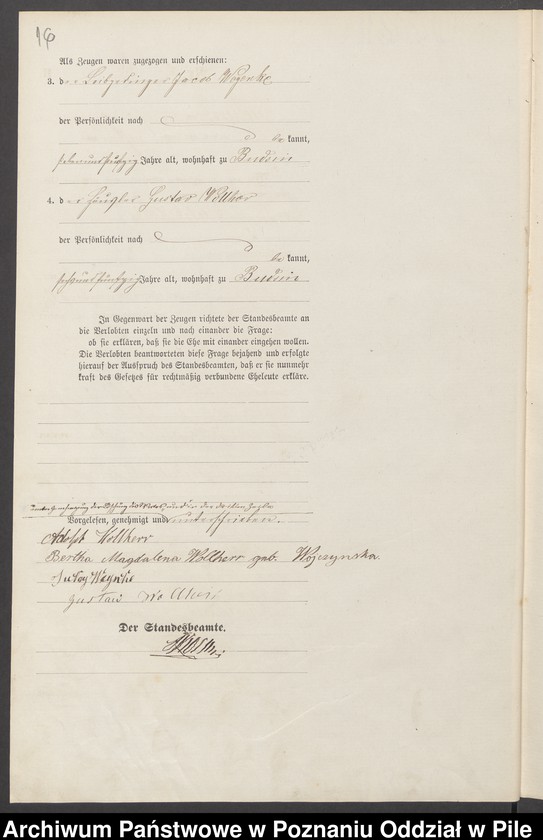 16
Als Zeugen waren zugezogen und erschienen:
3. der Jacob
der Persönlichkeit nach
be kannt,
siebenundfünfzig Jahre alt, wohnhaft zu Budsin
4. der Häusler Gustav Wollherr
der Persönlichkeit nach
be kannt,
sechsundfünfzig Jahre alt, wohnhaft zu Budsin
In Gegenwart der Zeugen richtete der Standesbeamte an
die Verlobten einzeln und nach einander die Frage:
ob sie erklären, daß sie die Ehe mit einander eingehen wollen.
Die Verlobten beantworteten diese Frage bejahend und erfolgte
hierauf der Ausspruch des Standesbeamten, daß er sie nunmehr
kraft des Gesetzes für rechtmäßig verbundene Eheleute erkläre.
Vorgelesen, genehmigt und unterschrieben.
Adolph Wollherr
Bertha Magdalena Wollherr geb. Wojczynska.
Gustav Wollherr
Der Standesbeamte.
Archiwum Państwowe w Poznaniu Oddział w Pile